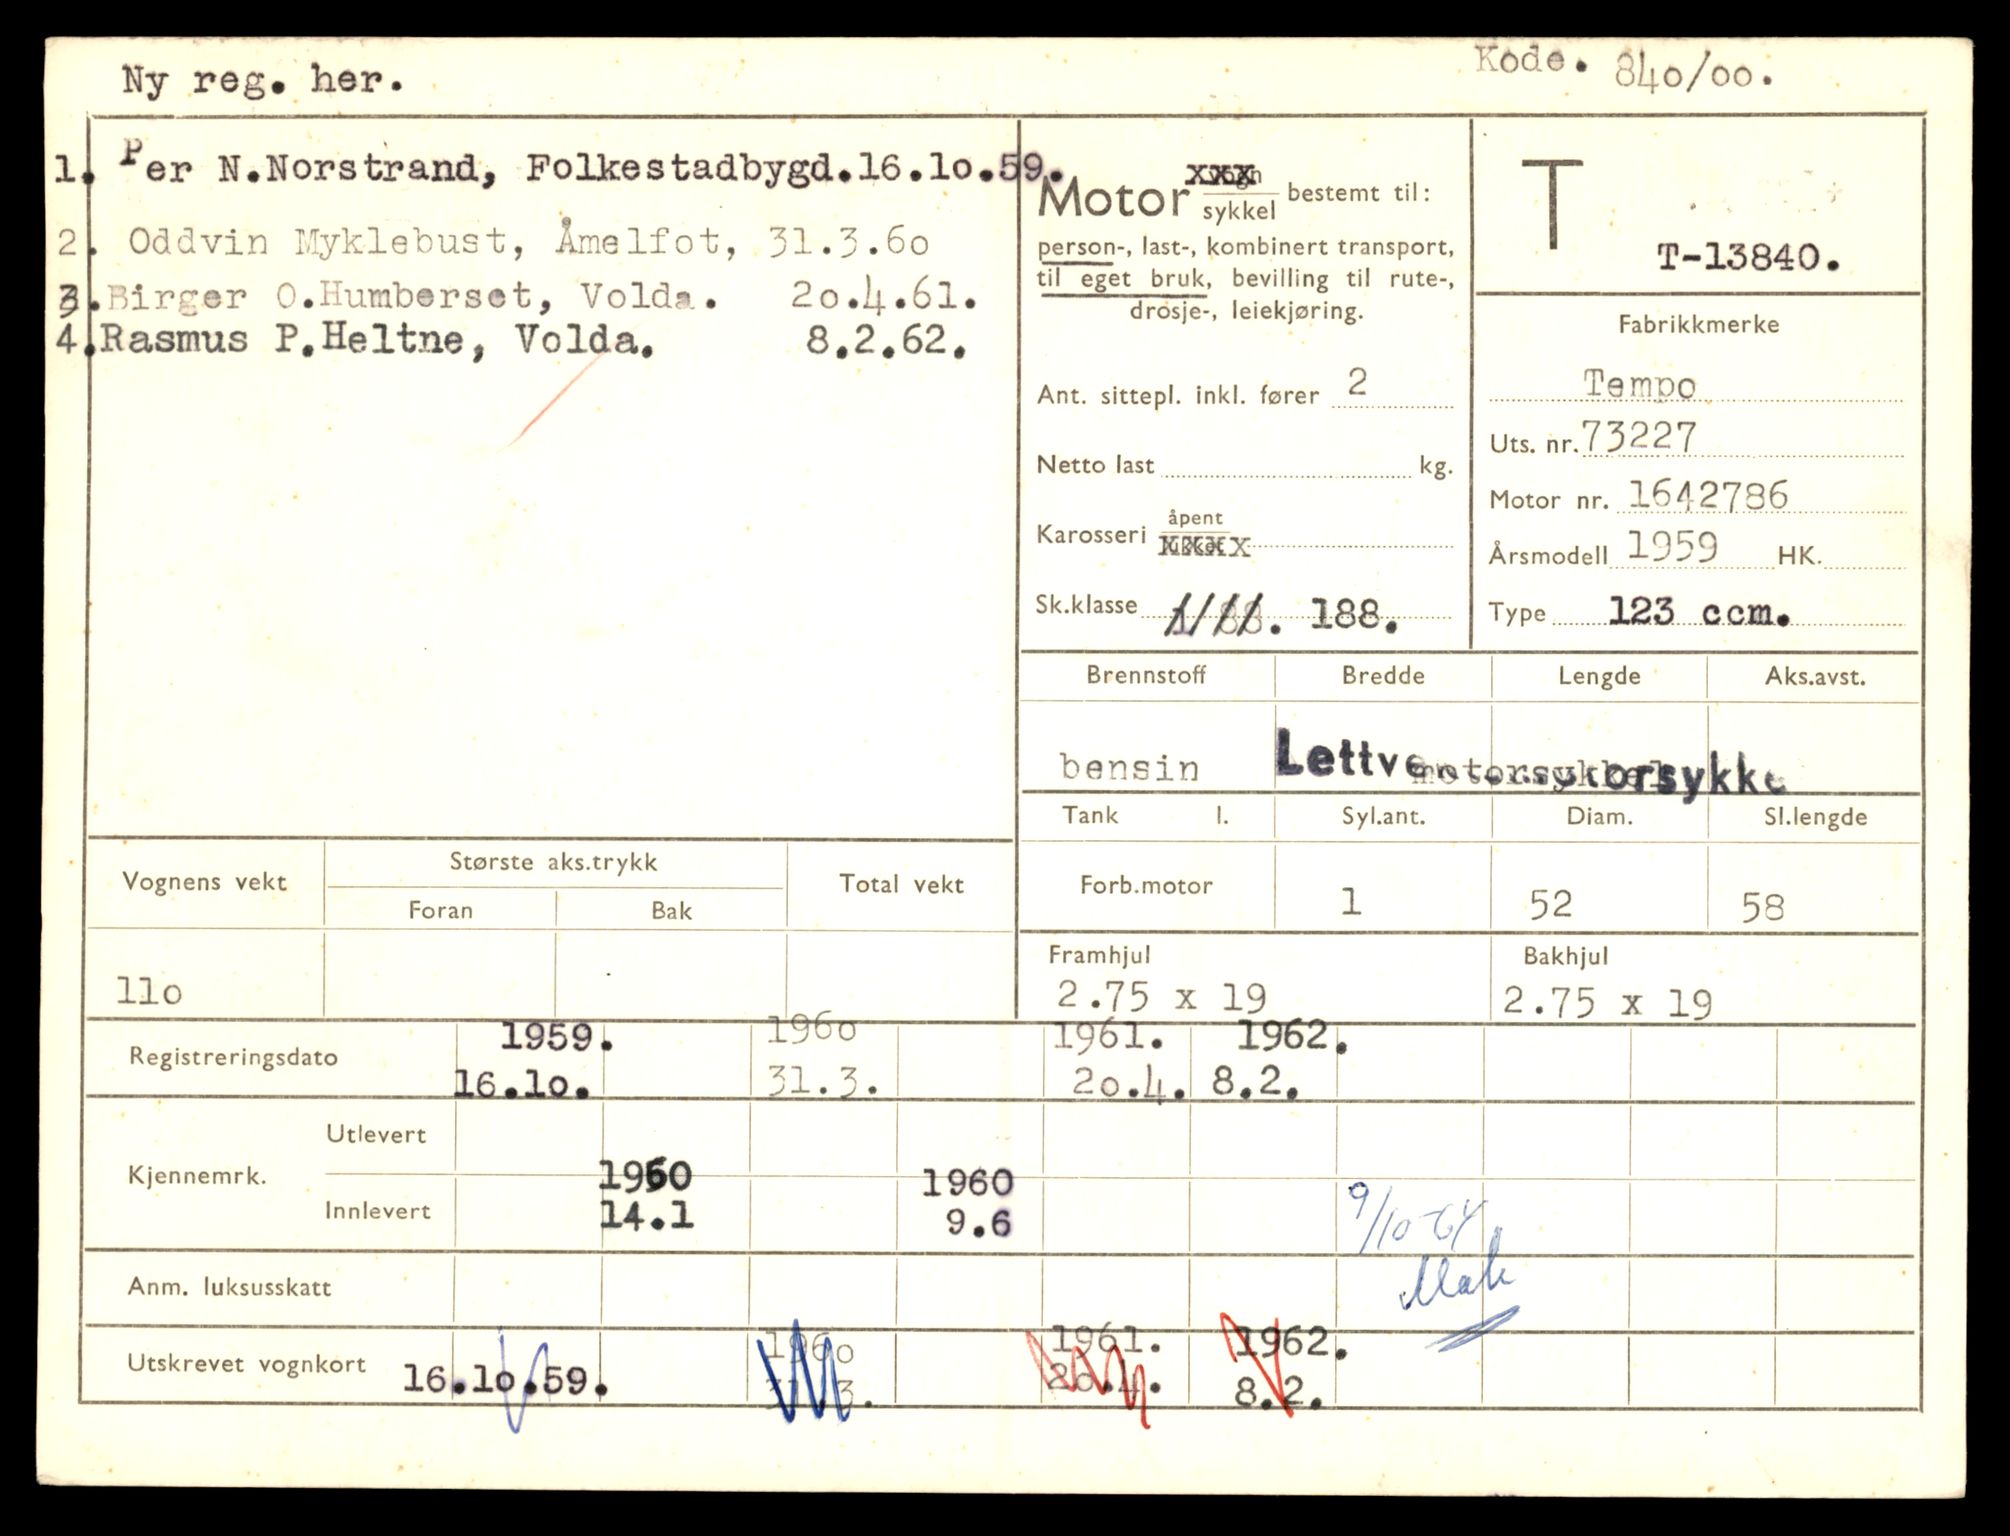 Ny reg. her.
Kode. 840/00.
1. Per N.Norstrand, Folkestadbygd.16.10.59.
2. Oddvin Myklebust, Åmelfot, 31.3.60
3.Birger O.Humberset, Volda. 20.4.61.
4.Rasmus P.Heltne, Volda. 8.2.62.
Motor vogn xxx
sykkel bestemt til:
person-, last-, kombinert transport,
til eget bruk, bevilling til rute-,
drosje-, leiekjøring.
Ant. sittepl. inkl. fører 2
Netto last kg.
Karosseri åpent
lukket xxxx
Sk.klasse 1/88. 188.
T
T-13840.
Fabrikkmerke
Tempo
Uts. nr. 73227
Motor nr. 1642786
Årsmodell 1959 HK.
Type 123 ccm.
Brennstoff Bredde Lengde Aks.avst.
bensin
Tank l. Syl.ant. Diam. Sl.lengde
Forb.motor 1 52 58
Framhjul Bakhjul
2.75 x 19 2.75 x 19
Vognens vekt Største aks.trykk Total vekt
Foran Bak
110
1959. 1960 1961. 1962.
Registreringsdato
16.10. 31.3. 20.4. 8.2.
Utlevert
Kjennemrk.
1960 1960
Innlevert 14.1 9.6
9/10-64
Anm. luksusskatt
1960 1961. 1962.
Utskrevet vognkort 16.10.59. 31.3. 20.4. 8.2.